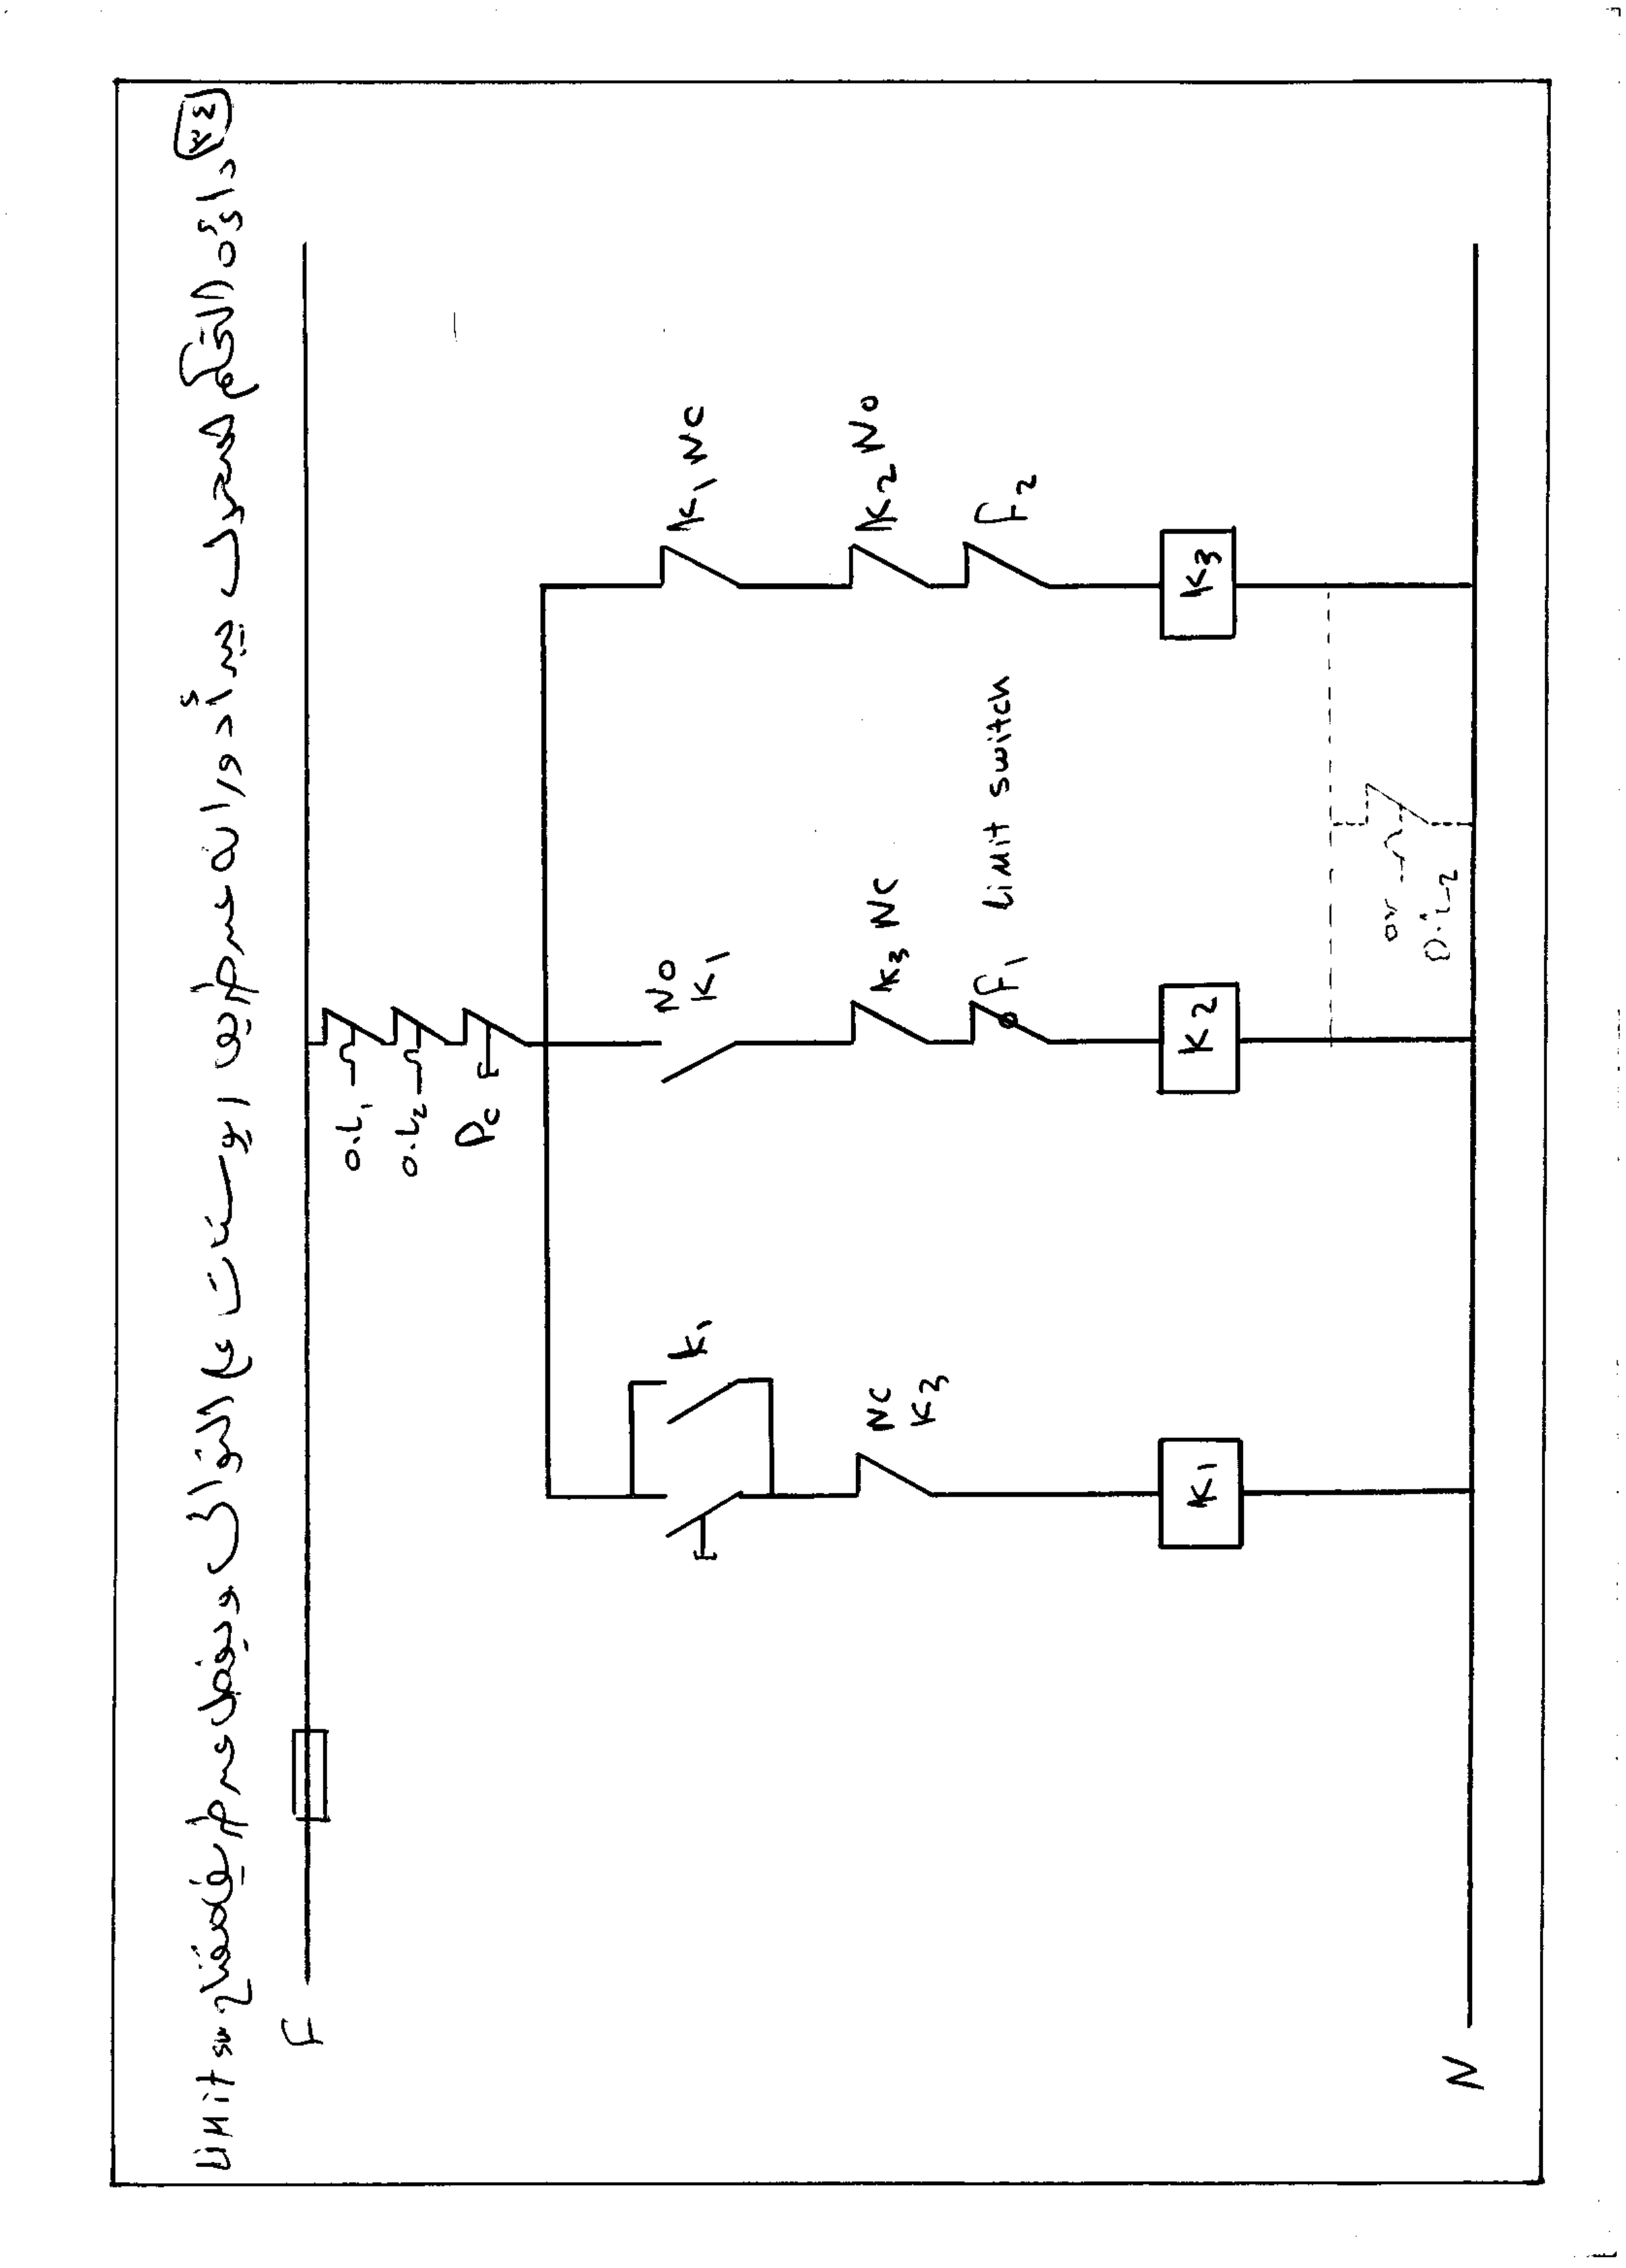 ٣٤ دائرة التحكم لمحرك يبدأ دورانه عن طريق ابوستات على التوالى ويفصل عن طريق مفتاح Limit sw
F
O.L1
O.L2
Pc
K1
NC
K3
K1
NO
K1
K3 NC
F1 Limit switch
K2
K1 NC
K2 NO
F2
K3
or
O.L2
N